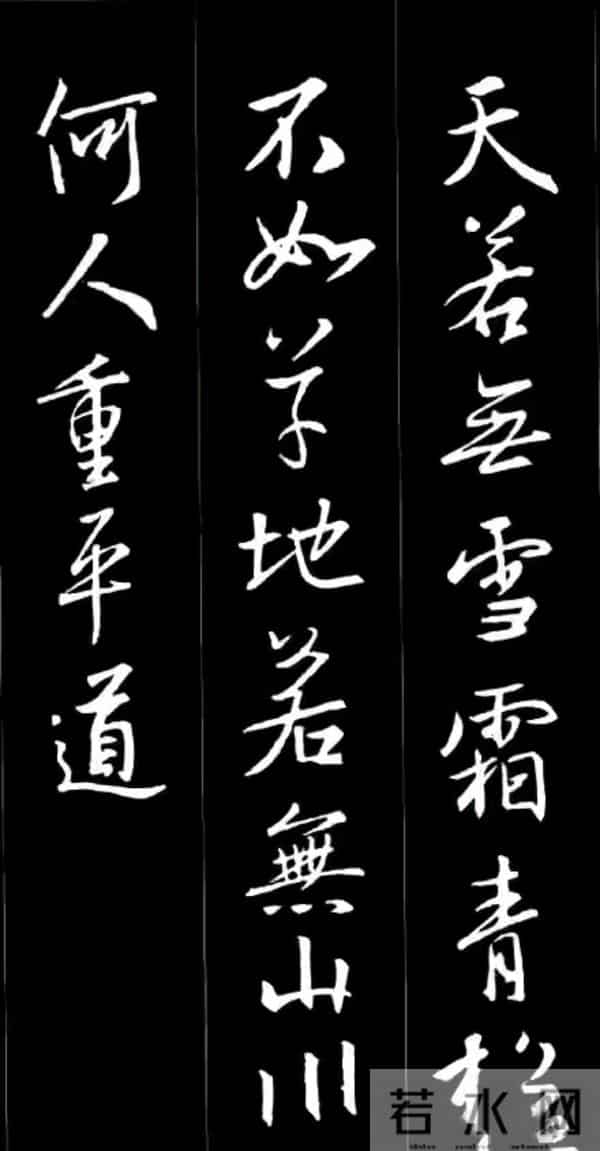 天若無雪霜青松
不如草地若無山川
何人重平道
若水网